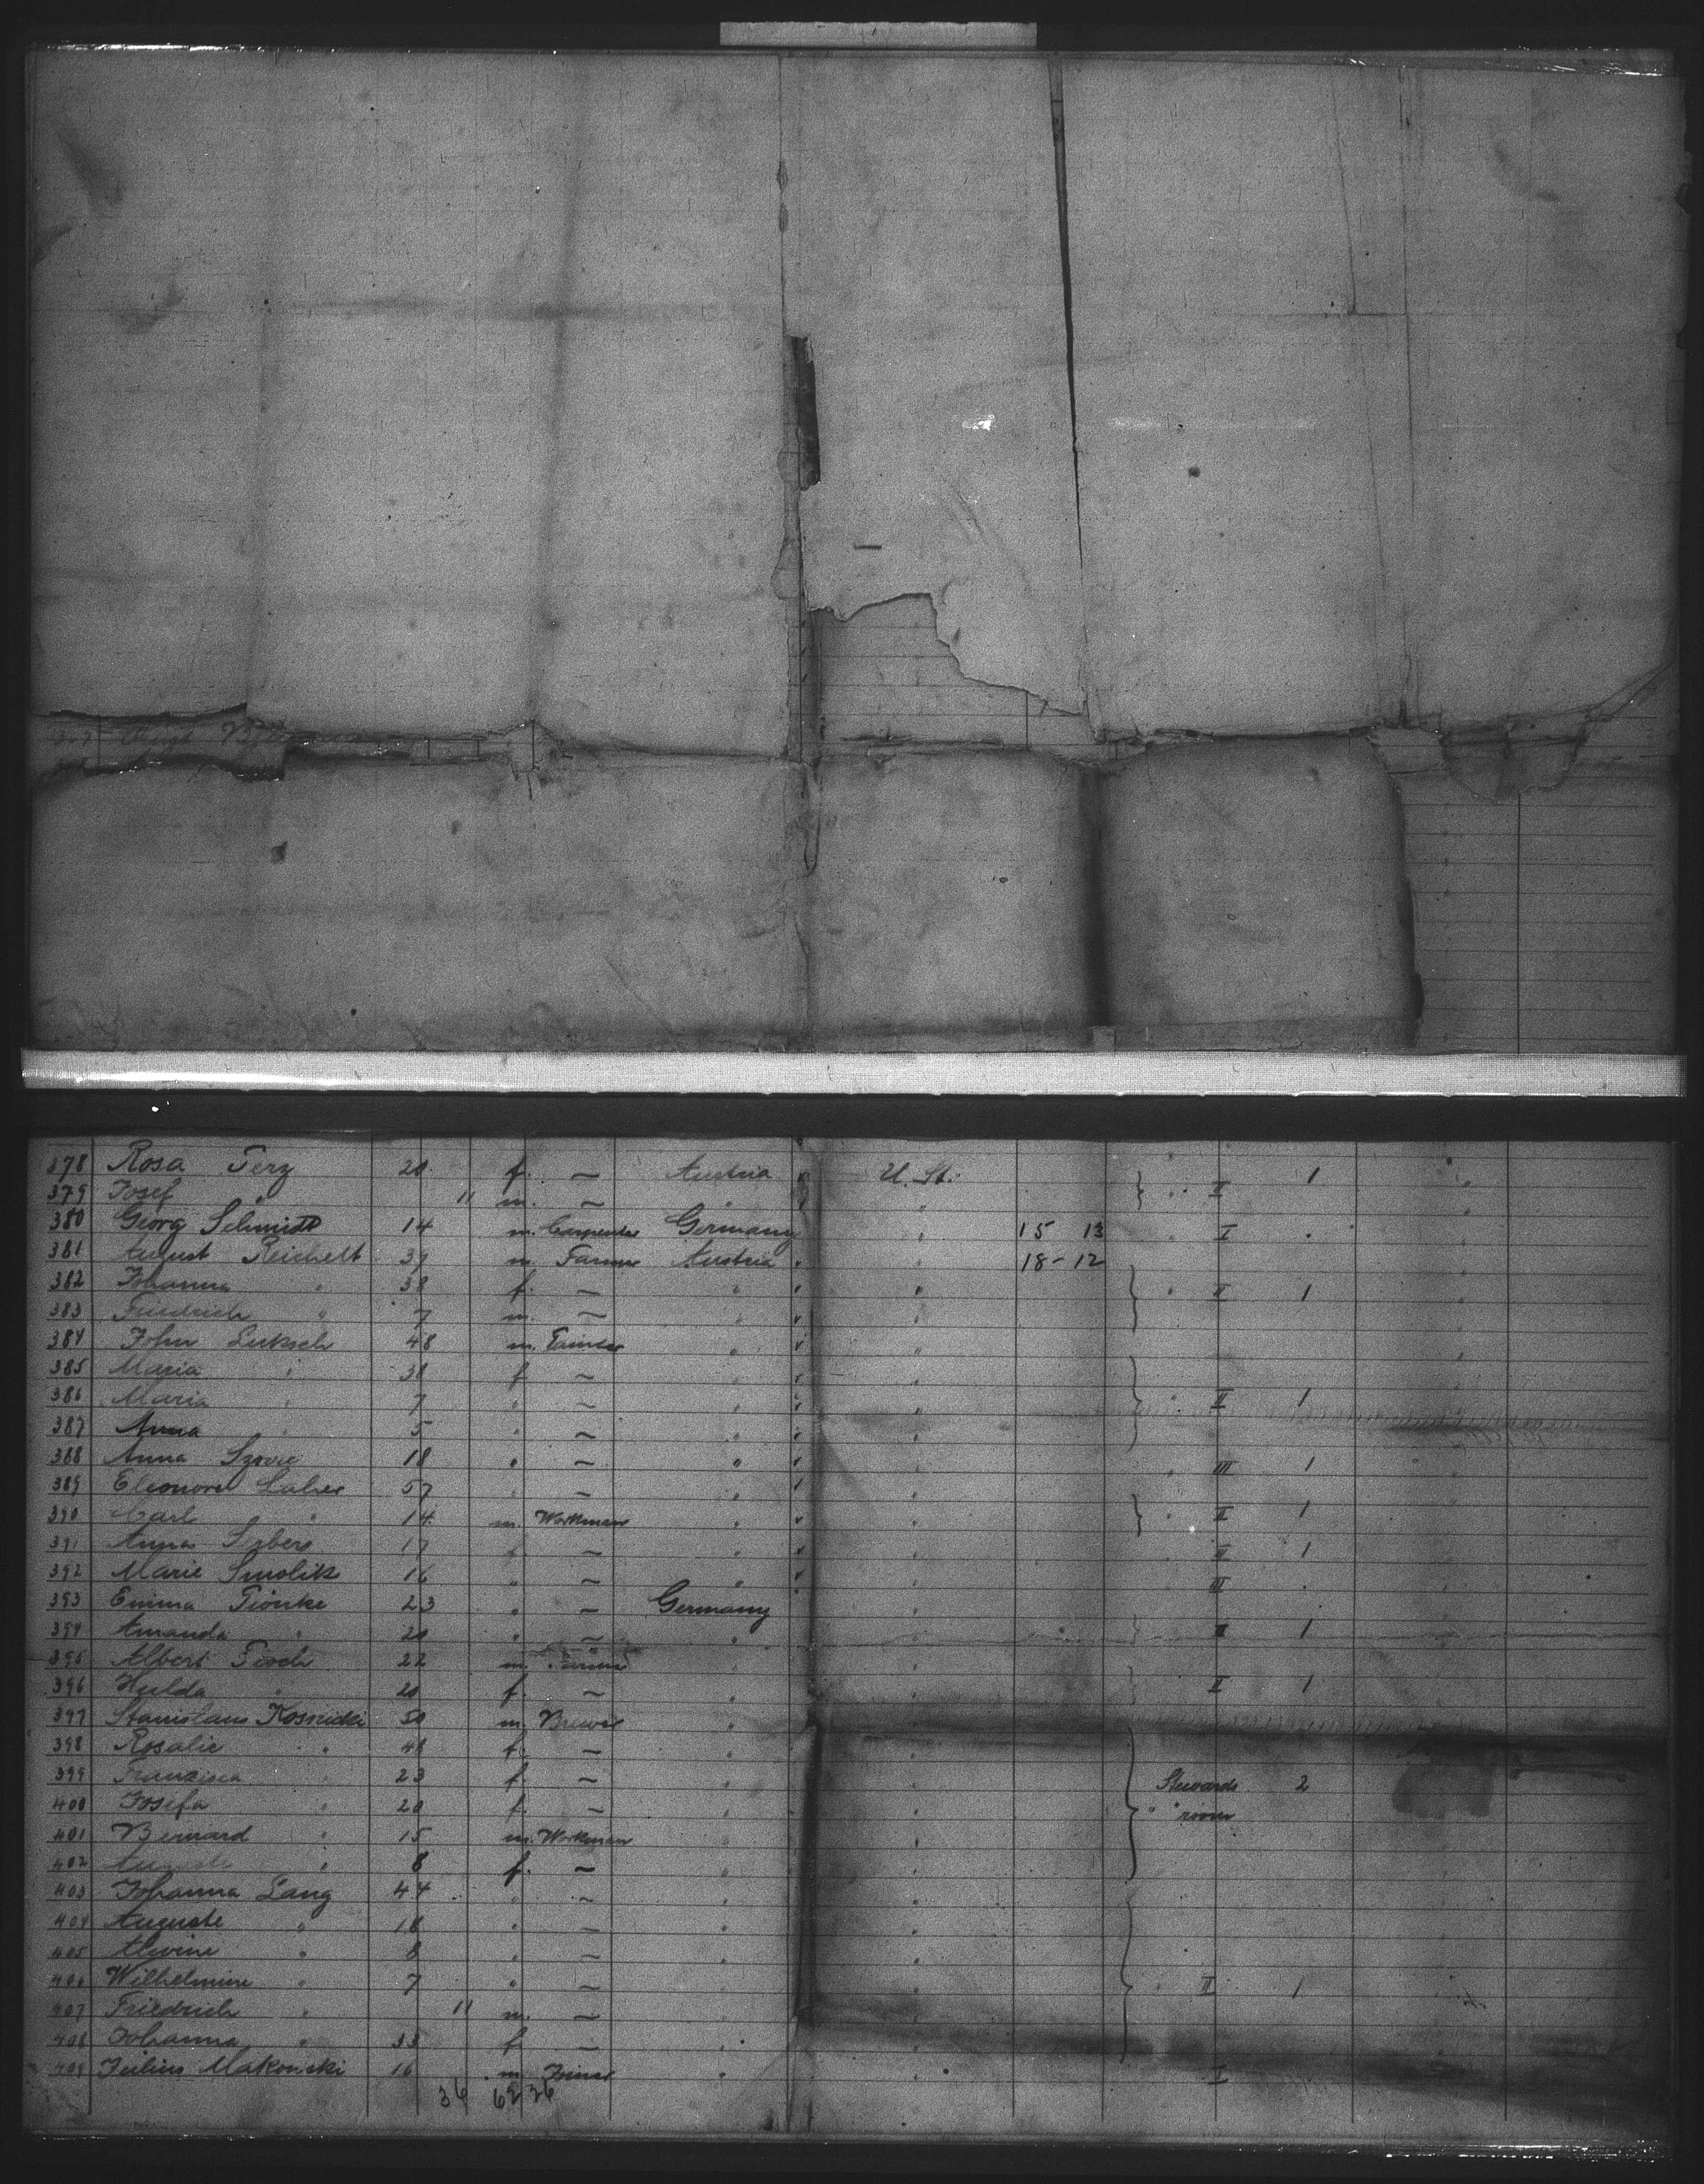 378 Rosa Terz 20 f. — Austria " U. St. } " " II 1 "
379 Josef " 11 m. — " "
380 Georg Schmidt 14 m. Carpenter Germany " 15 13 " I "
381 August Reichelt 39 m. Farmer Austria " 18-12
382 Johanna " 38 f. — " " " } " II 1 "
383 Friedrich " 7 m. — " "
384 John Luksch 48 m. " "
385 Maria " 38 f — " "
386 Maria " 7 " — " " " } " II 1
387 Anna " 5 " — " "
388 Anna 18 " — " " " III 1
389 Eleonore 57 " — " "
390 Carl " 14 m. Workman " " } " II 1
391 Anna 17 " — " " II 1
392 Marie Smolik 16 " — " " III "
393 Emma 23 " — Germany "
394 Amanda " 20 " — " " } II 1
395 Albert 22 m. " "
396 Hulda " 20 f. — " " } II 1
397 Stanislaus 50 m. Brewer " "
398 Rosalie " 48 f. — "
399 Franzisca " 23 f. — " } Stewards 2
400 Josefa " 20 f. — " " " room
401 Bernard " 15 m. Workman " "
402 " 8 f. — " "
403 Johanna Lang 44 " — " "
404 Auguste " 18 " — " "
405 Alwine " 8 " — " "
406 Wilhelmine " 7 " — " " } " II 1
407 Friedrich " 11 m. — " "
408 Johanna " 33 f. — " "
409 Julius Makowski 16 m. Joiner " " I
36 62 26